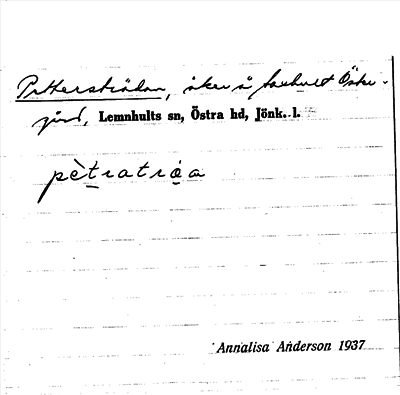 Pettersträdan, åker å Saxhult Öster-
gård, Lemnhults sn, Östra hd, Jönk. l.
pètratrǫa
Annalisa Anderson 1937